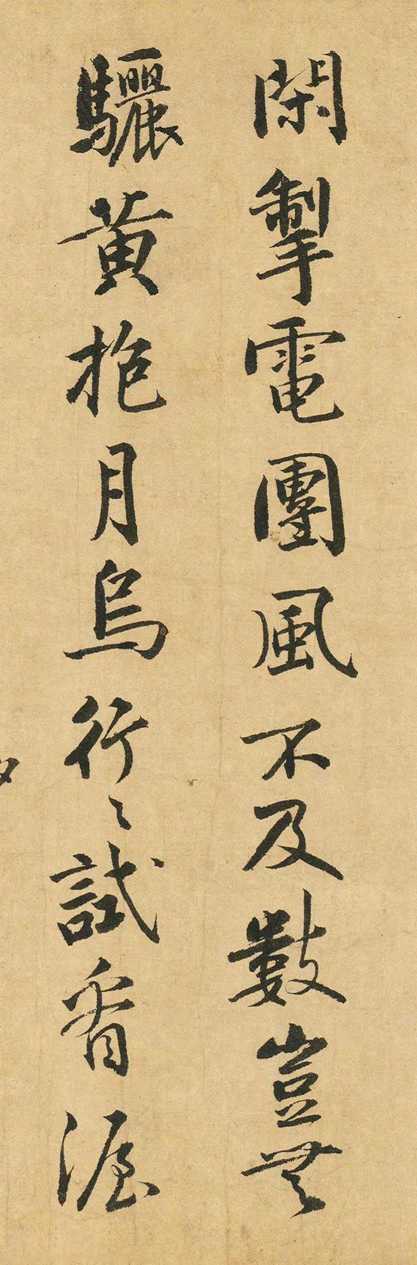 閑掣電團風不及數豈無
驪黄抱月烏行々試看渥